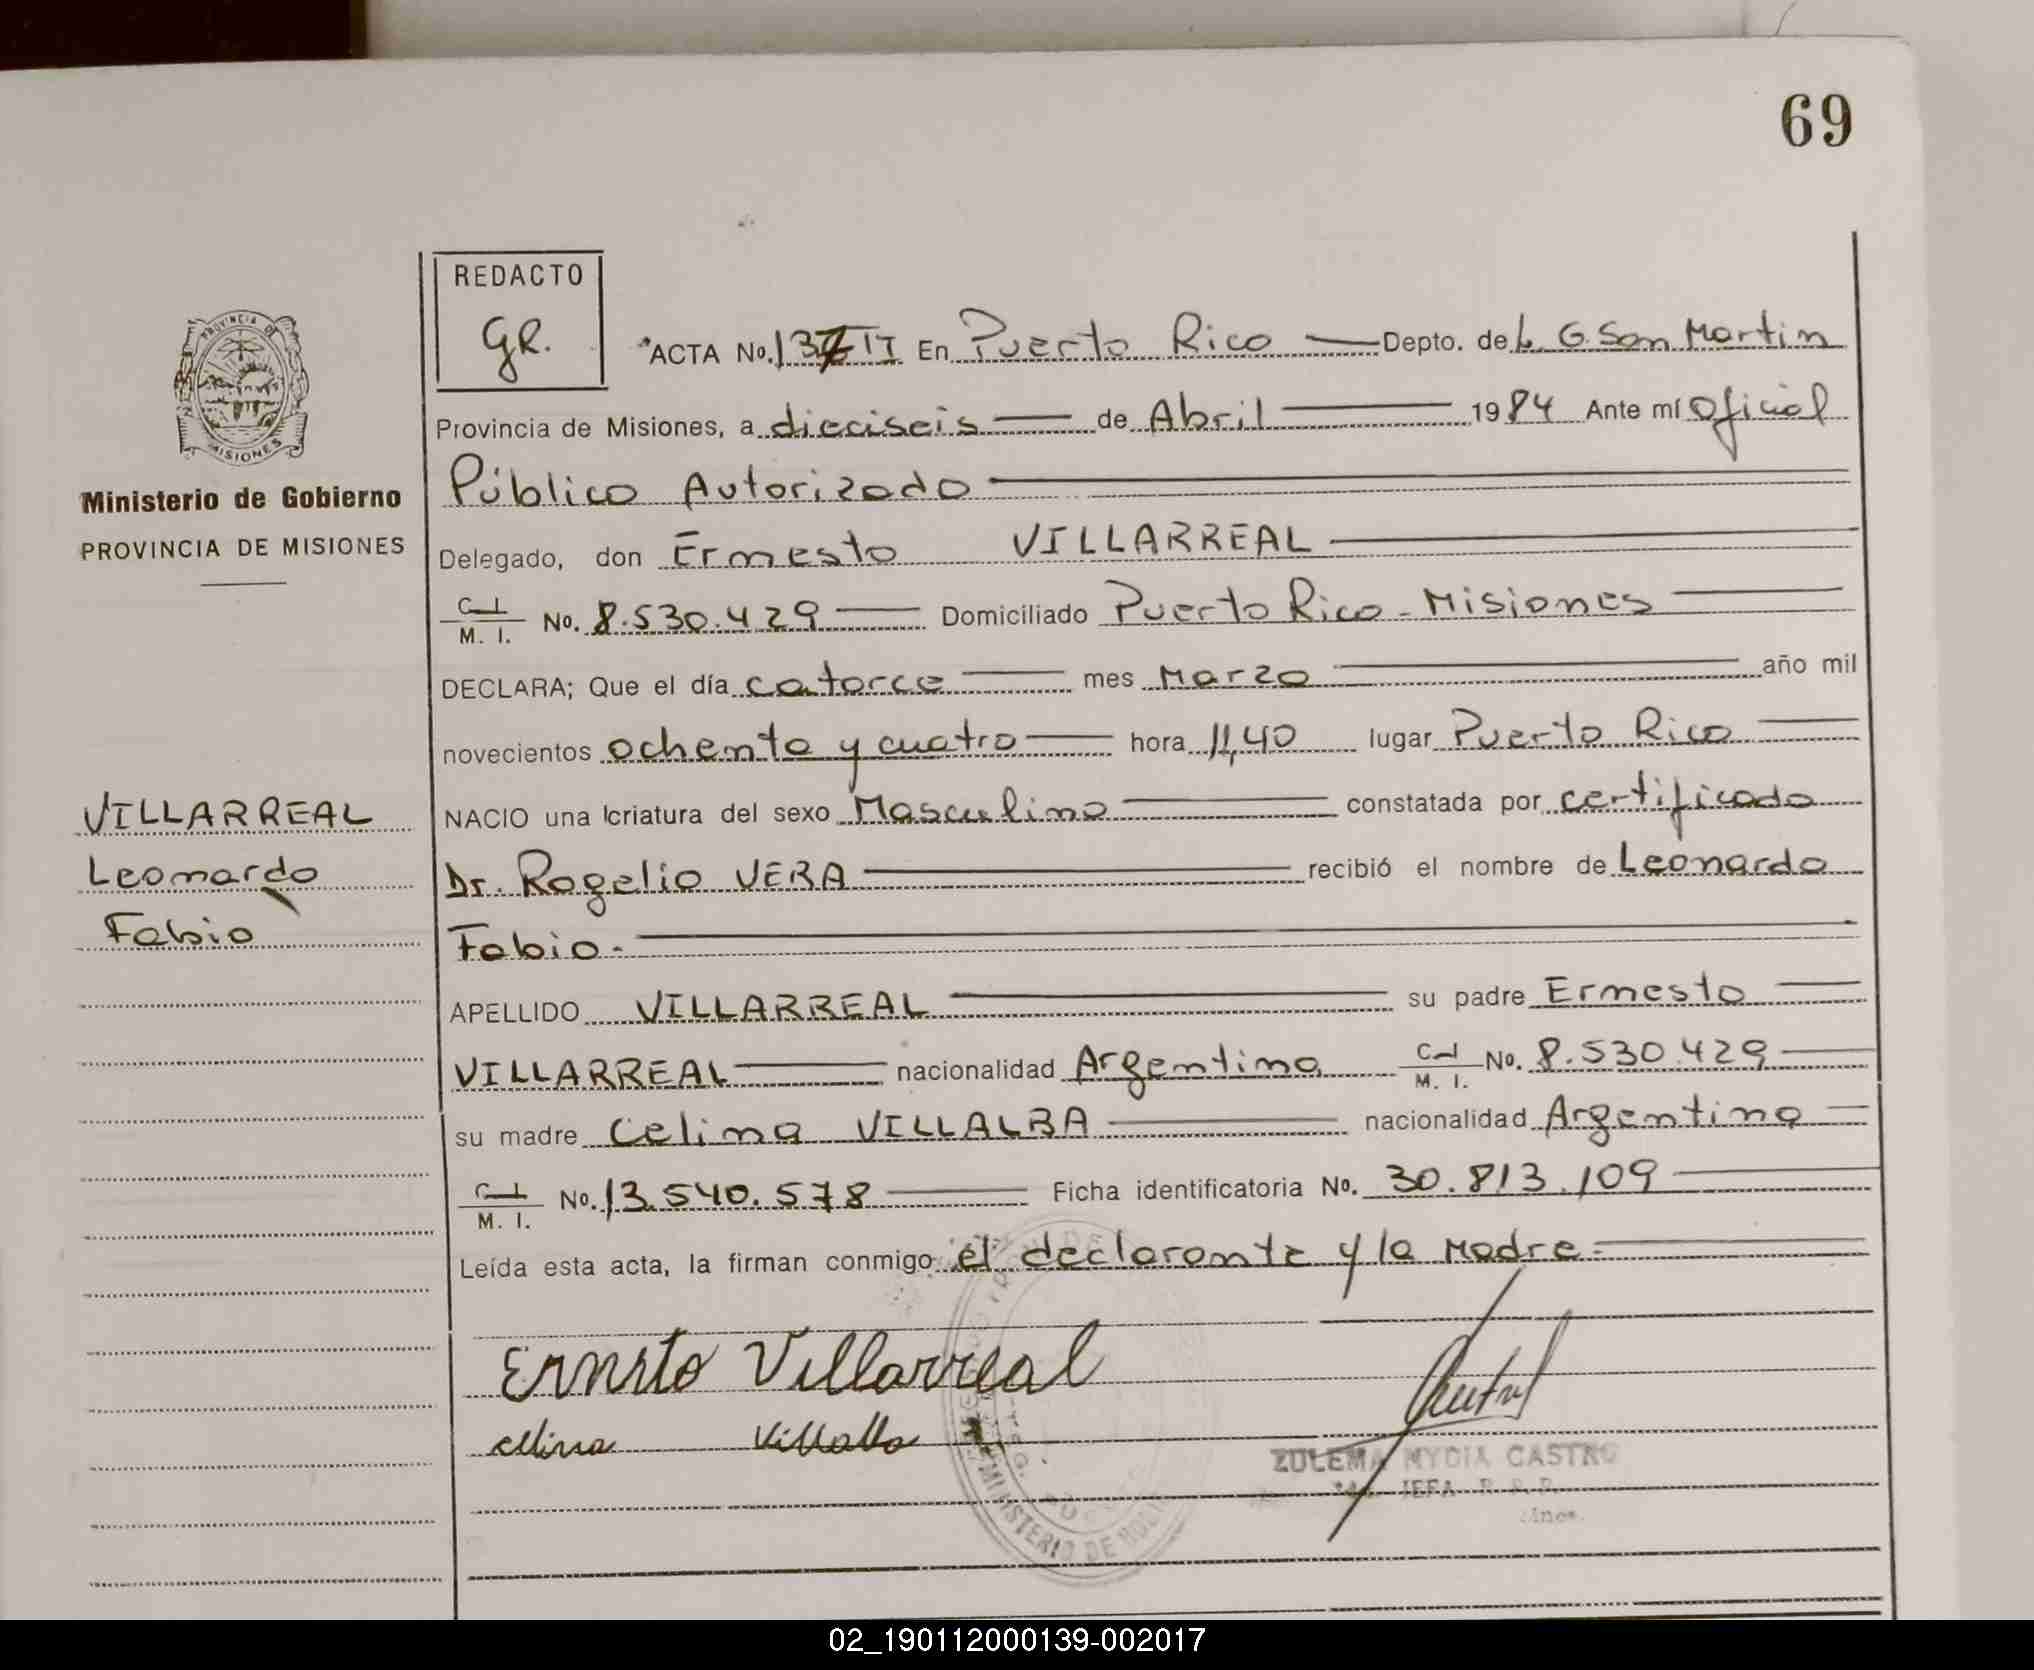 69
REDACTO
GR.
PROVINCIA DE
MISIONES
ACTA No. 137 II En Puerto Rico Depto. de L. G. San Martin
Provincia de Misiones, a dieciseis de Abril 1984 Ante mí Oficial
Ministerio de Gobierno
Público Autorizado
PROVINCIA DE MISIONES
Delegado, don Ernesto VILLARREAL
C. I. M. I. No. 8.530.429 Domiciliado Puerto Rico - Misiones
DECLARA; Que el día catorce mes Marzo año mil
novecientos ochenta y cuatro hora 11,40 lugar Puerto Rico
VILLARREAL
NACIO una criatura del sexo Masculino constatada por certificado
Leonardo
Dr. Rogelio VERA recibió el nombre de Leonardo
Fabio
Fabio.
APELLIDO VILLARREAL su padre Ernesto
VILLARREAL nacionalidad Argentina C. I. M. I. No. 8.530.429
su madre Celina VILLALBA nacionalidad Argentina
C. I. M. I. No. 13.540.578 Ficha identificatoria No. 30.813.109
Leída esta acta, la firman conmigo el declarante y la Madre.
Ernesto Villarreal
Celina Villalba
ZULEMA MYDIA CASTRO
JEFA
MINISTERIO DE
02_190112000139-002017